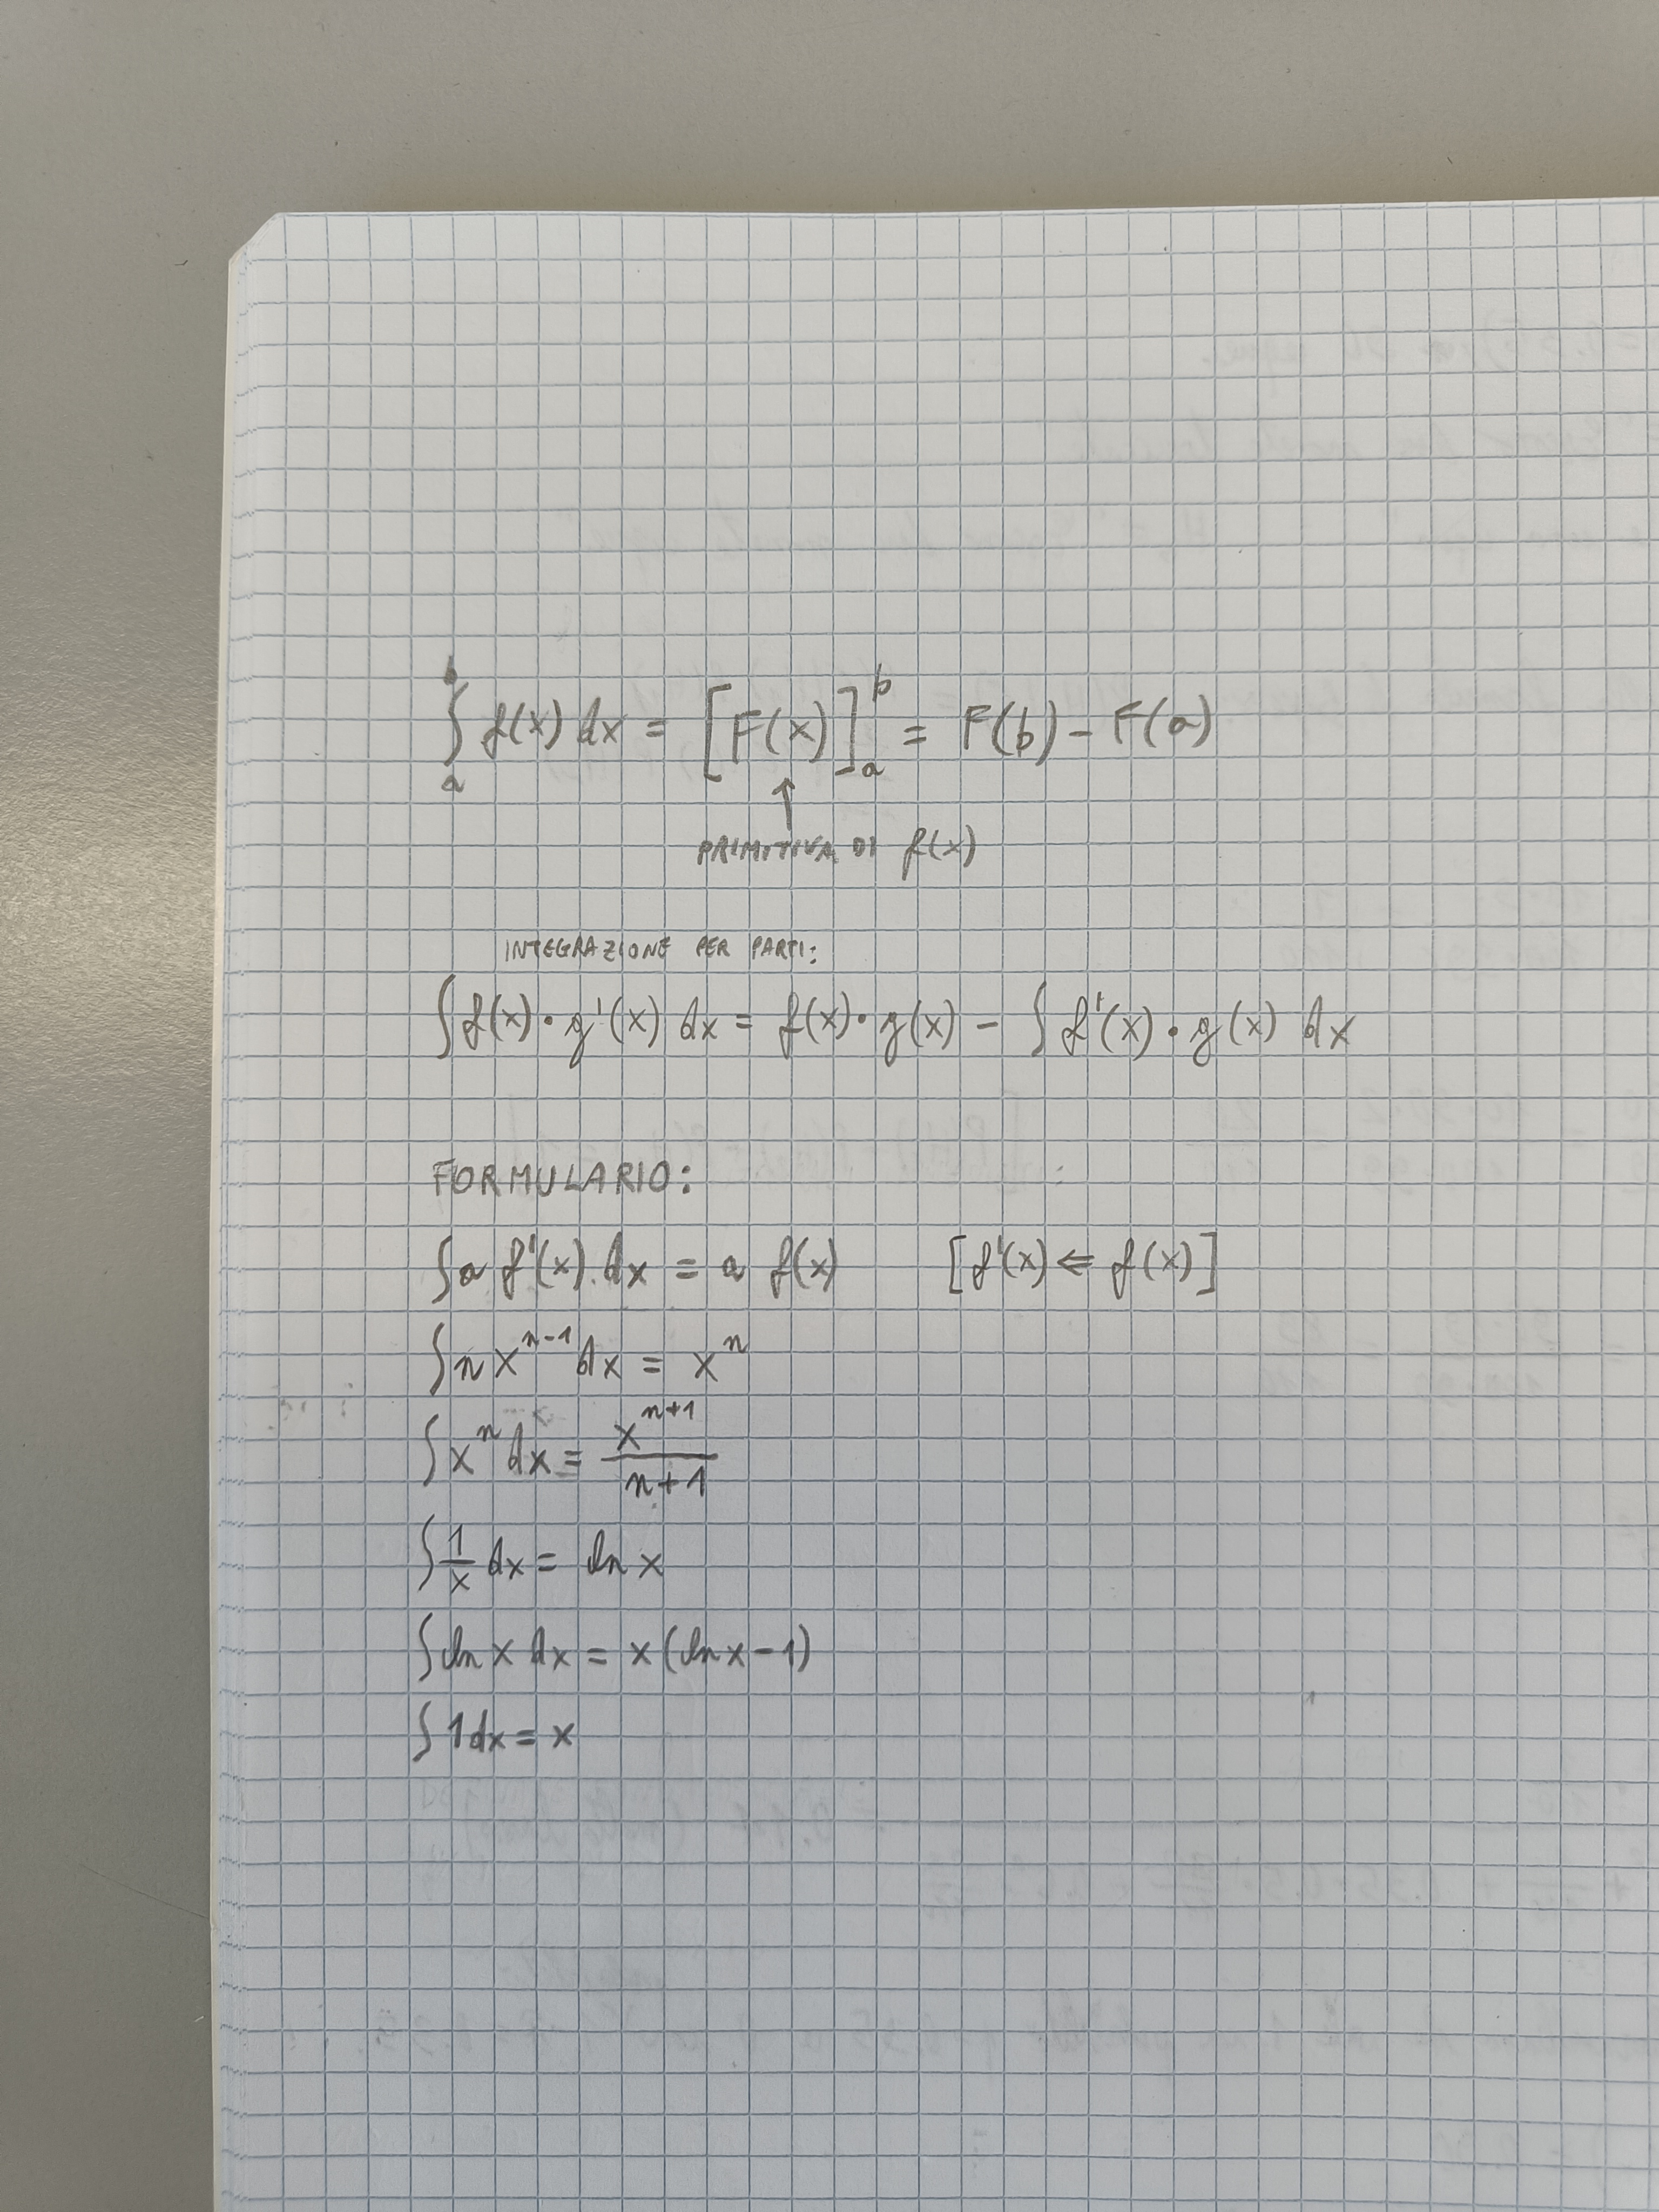 ∫ₐᵇ f(x) dx = [F(x)]ₐᵇ = F(b) - F(a)
↑
PRIMITIVA DI f(x)
INTEGRAZIONE PER PARTI:
∫ f(x) · g'(x) dx = f(x) · g(x) - ∫ f'(x) · g(x) dx
FORMULARIO:
∫ a f'(x) dx = a f(x) [f'(x) ⇐ f(x)]
∫ n xⁿ⁻¹ dx = xⁿ
∫ xⁿ dx = xⁿ⁺¹/n+1
∫ 1/x dx = ln x
∫ ln x dx = x (ln x - 1)
∫ 1 dx = x